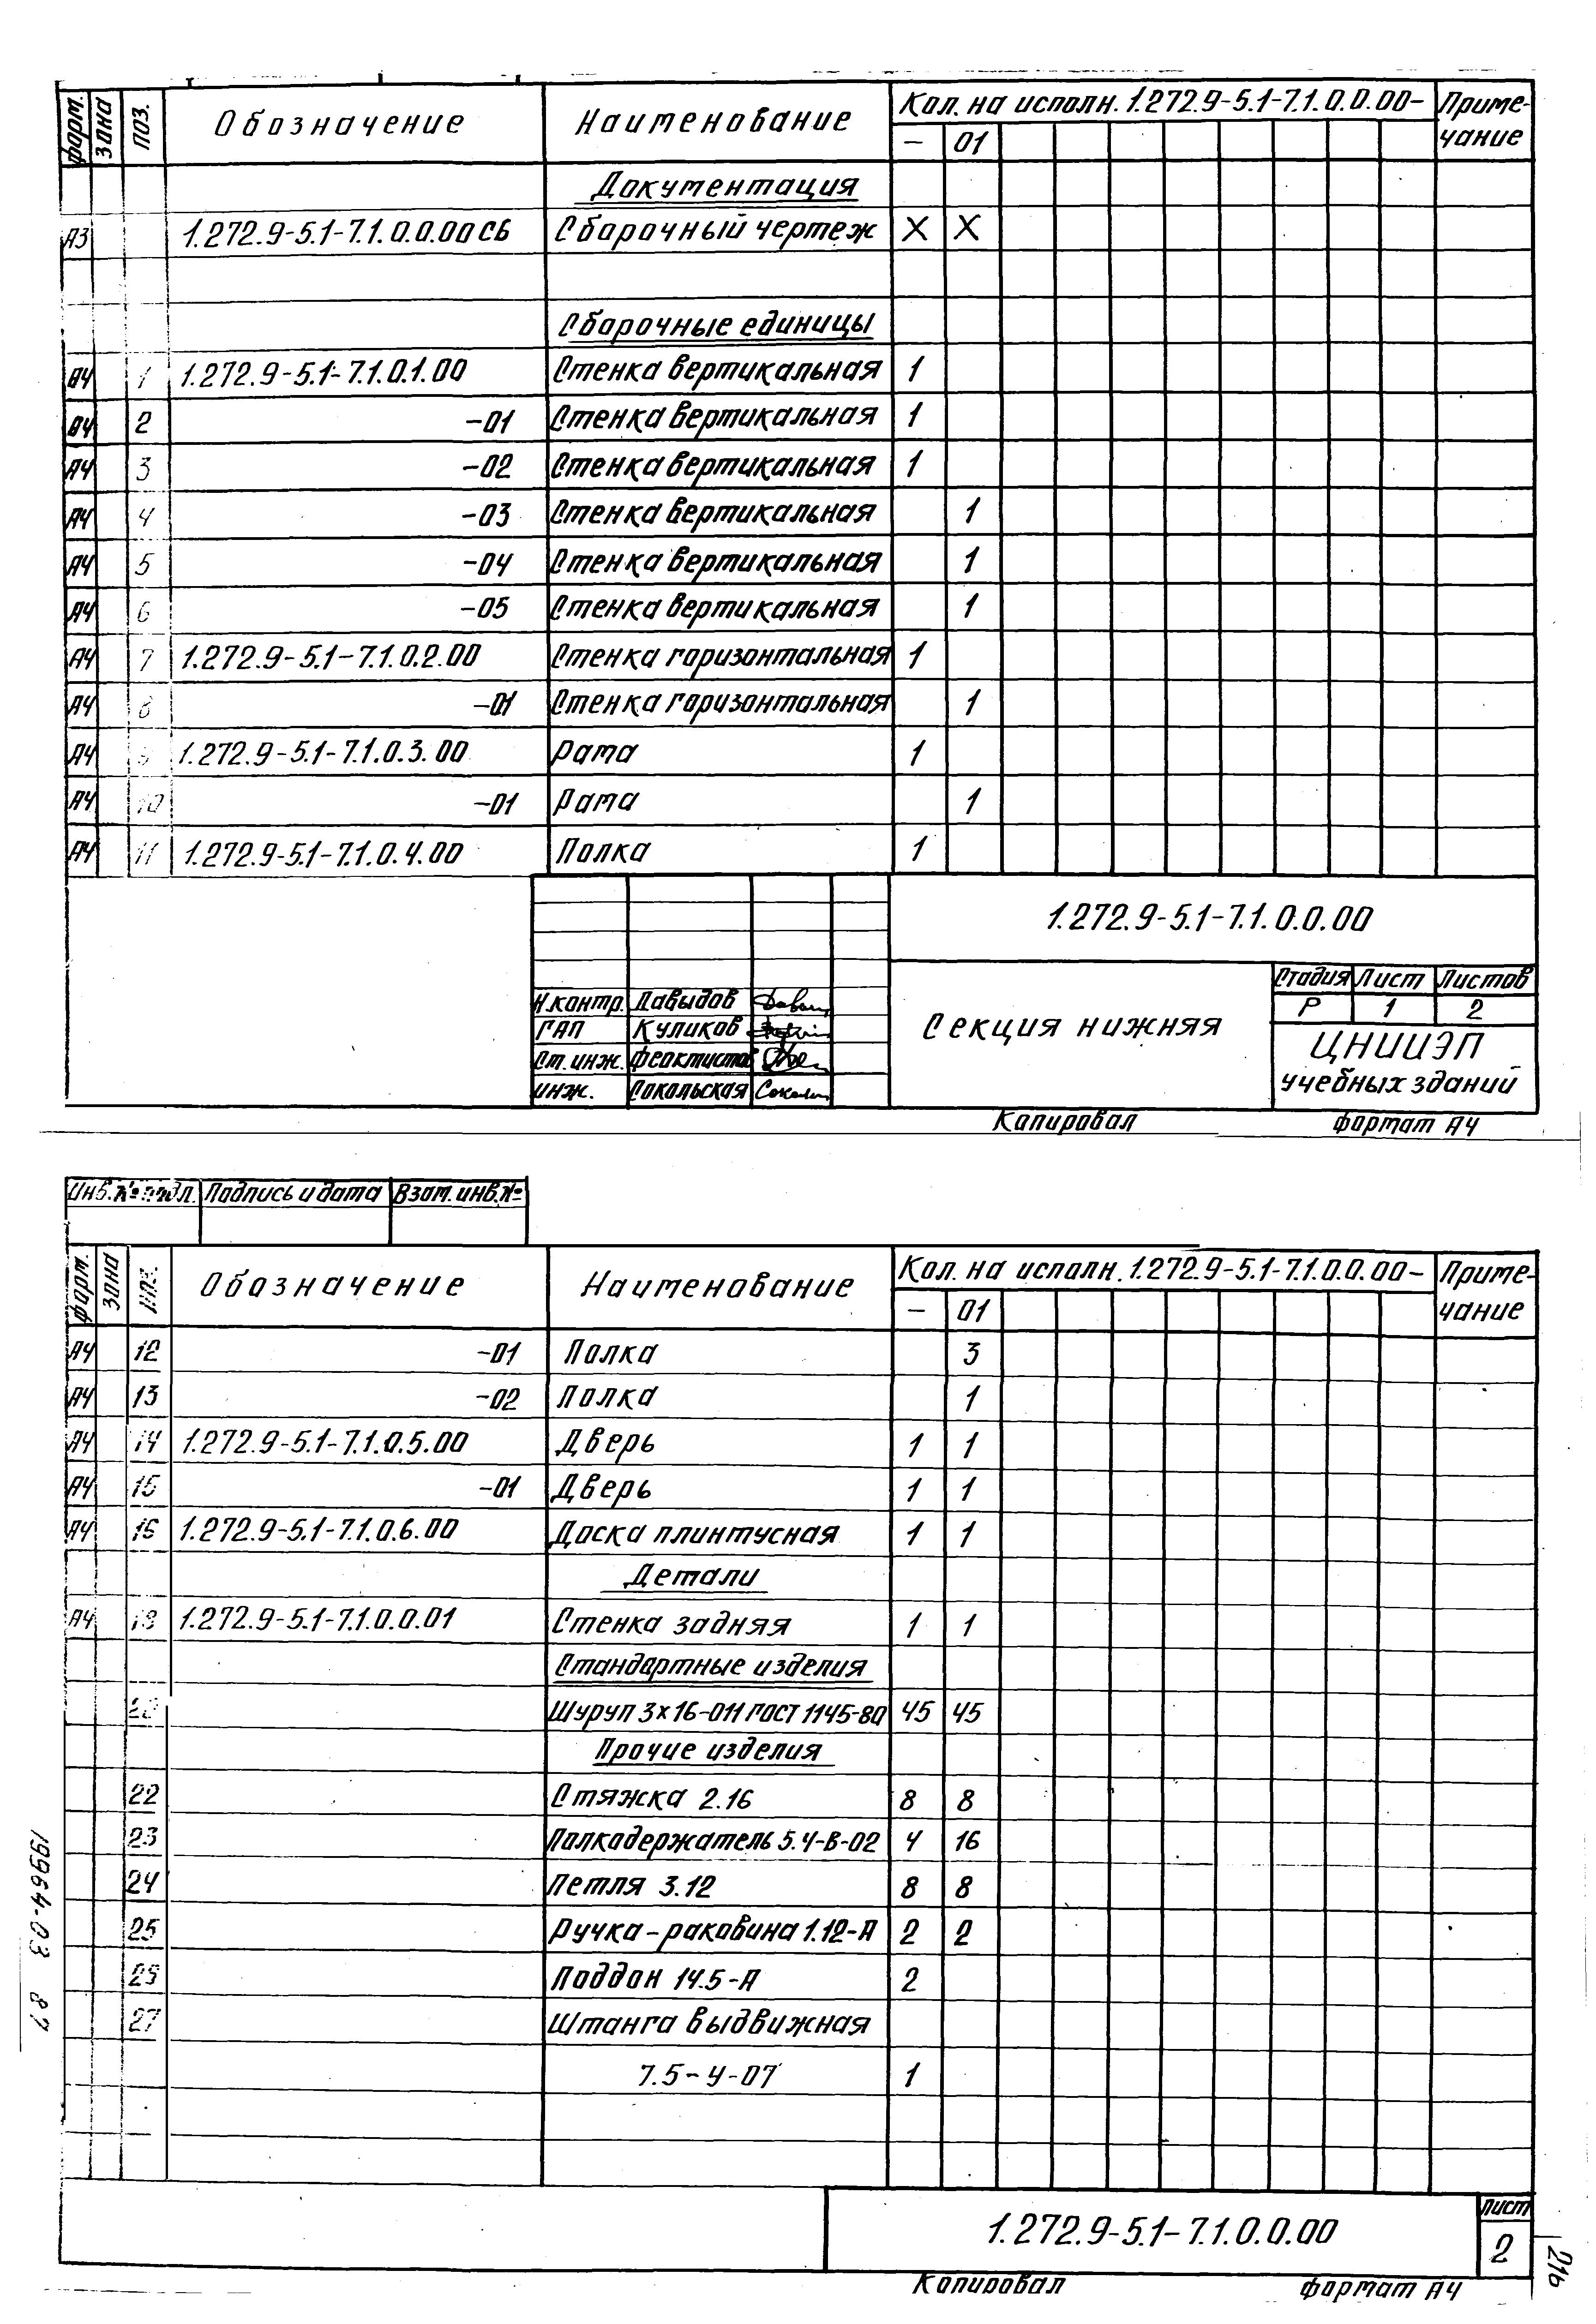 форм. зона поз. Обозначение Наименование Кол. на исполн. 1.272.9-5.1-7.1.0.0.00- Приме-чание
– 01
Документация
А3 1.272.9-5.1-7.1.0.0.00СБ Сборочный чертеж X X
Сборочные единицы
А4 1 1.272.9-5.1-7.1.0.1.00 Стенка вертикальная 1
А4 2 -01 Стенка вертикальная 1
А4 3 -02 Стенка вертикальная 1
А4 4 -03 Стенка вертикальная 1
А4 5 -04 Стенка вертикальная 1
А4 6 -05 Стенка вертикальная 1
А4 7 1.272.9-5.1-7.1.0.2.00 Стенка горизонтальная 1
А4 8 -01 Стенка горизонтальная 1
А4 9 1.272.9-5.1-7.1.0.3.00 Рама 1
А4 10 -01 Рама 1
А4 11 1.272.9-5.1-7.1.0.4.00 Полка 1
1.272.9-5.1-7.1.0.0.00
Н.контр. Давыдов
ГАП Куликов
Ст. инж. Феоктистов
инж. Сокольская
Секция нижняя
Стадия Лист Листов
Р 1 2
ЦНИИЭП
учебных зданий
Копировал формат А4
Инв.№ подл. Подпись и дата Взам. инв.№
форм. зона поз. Обозначение Наименование Кол. на исполн. 1.272.9-5.1-7.1.0.0.00- Приме-чание
– 01
А4 12 -01 Полка 3
А4 13 -02 Полка 1
А4 14 1.272.9-5.1-7.1.0.5.00 Дверь 1 1
А4 15 -01 Дверь 1 1
А4 16 1.272.9-5.1-7.1.0.6.00 Доска плинтусная 1 1
Детали
А4 18 1.272.9-5.1-7.1.0.0.01 Стенка задняя 1 1
Стандартные изделия
20 Шуруп 3×16-011 ГОСТ 1145-80 45 45
Прочие изделия
22 Стяжка 2.16 8 8
23 Полкадержатель 5.4-В-02 4 16
24 Петля 3.12 8 8
25 Ручка-раковина 1.12-А 2 2
26 Поддон 14.5-А 2
27 Штанга выдвижная
7.5-У-07 1
1.272.9-5.1-7.1.0.0.00
Лист
2
Копировал формат А4
19964-03 87
216